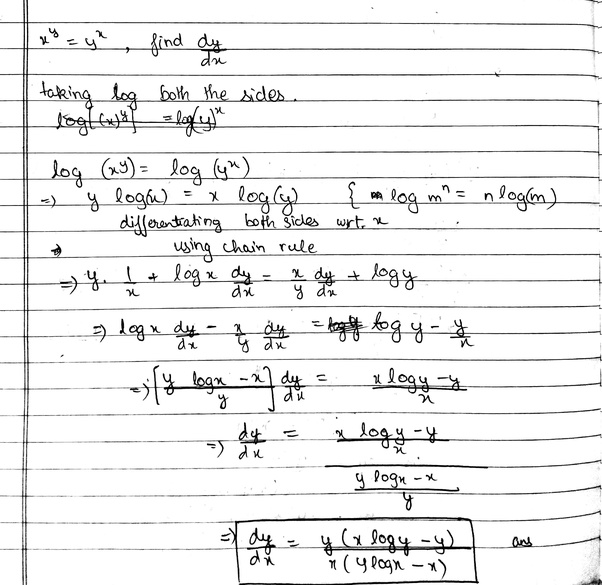 x^y = y^x , find dy/dx
taking log both the sides.
log[(x)^y] = log(y)^x
log (x^y) = log (y^x)
=> y log(x) = x log(y) { log m^n = n log(m)
differentiating both sides wrt. x
=> using chain rule
=> y. 1/x + log x dy/dx = x/y dy/dx + log y
=> log x dy/dx - x/y dy/dx = log y - y/x
=> [(y log x - x)/y] dy/dx = (x log y - y)/x
=> dy/dx = ((x log y - y)/x)/((y log x - x)/y)
=> dy/dx = y (x log y - y)/x (y log x - x) ans